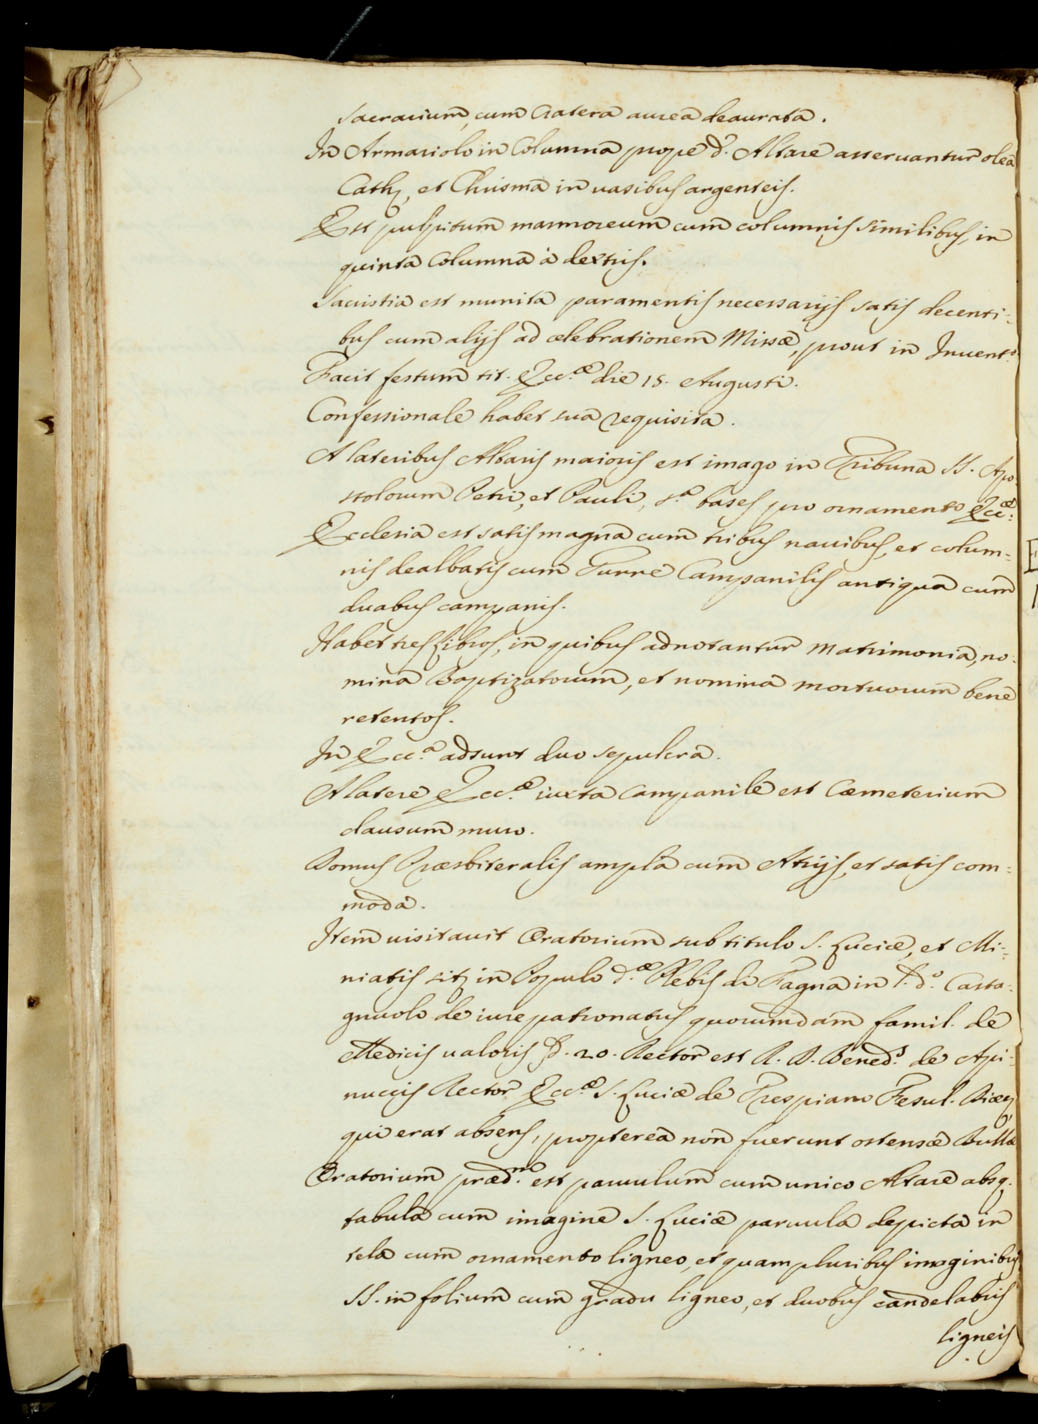 sacrarium, cum Cratera aurea deaurata.
In Armariolo in Columna prope d. Altare asseruantur olea
Cath., et Chrisma in uasibus argenteis.
Est pulpitum marmoreum cum columnis similibus, in
quinta Columna à dextris.
Sacristia est munita paramentis necessarijs satis decenti-
bus cum alijs ad celebrationem Missæ, prout in Inuent.º
Facit festum tit. Ecc.æ die 15. Augusti.
Confessionale habet sua requisita.
A lateribus Altaris maioris est imago in Tribuna SS. Apo-
stolorum Petri, et Pauli, s.ª bases pro ornamento Ecc.æ
Ecclesia est satis magna cum tribus nauibus, et colum-
nis dealbatis cum Turre Campanilis antiqua cum
duabus campanis.
Habet tres libros, in quibus adnotantur matrimonia, no-
mina Baptizatorum, et nomina mortuorum bene
retentos.
In Ecc.ª adsunt duo sepulcra.
A latere Ecc.æ iuxta Campanile est Cæmeterium
clausum muro.
Domus Præsbiteralis ampla cum Atrijs, et satis com-
moda.
Item uisitauit Oratorium sub titulo S. Luciæ, et Mi-
niatis sit. in Populo d.æ Plebis de Fagna in l. d.º Casta-
gnuolo de iure patronatus quorumdam famil. de
Medicis ualoris 20. Rector est R. D. Bened.s de Api-
nuccijs Rector Ecc.æ S. Luciæ de Trespiano Fesul. Diæc.
qui erat absens, propterea non fuerunt ostensæ Bullæ
Oratorium præd.m est paruulum cum unico Altare absq.
tabula cum imagine S. Luciæ paruula depicta in
tela cum ornamento ligneo, et quampluribus imaginibus
SS. in folium cum gradu ligneo, et duobus candelabris
ligneis